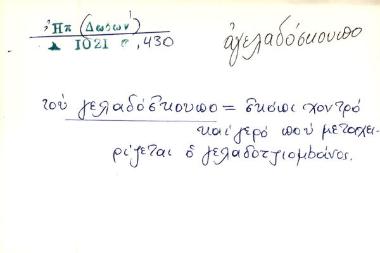 Ἠπ (Δωδών)
▲ 1021 σ, 430
ἀγελαδόσκουπο
τοὐ γελαδόσκουπο = σκοπι χοντρό
καί γερό πού μεταχει-
ρίζεται ὁ γελαδοτζιομbάνος.